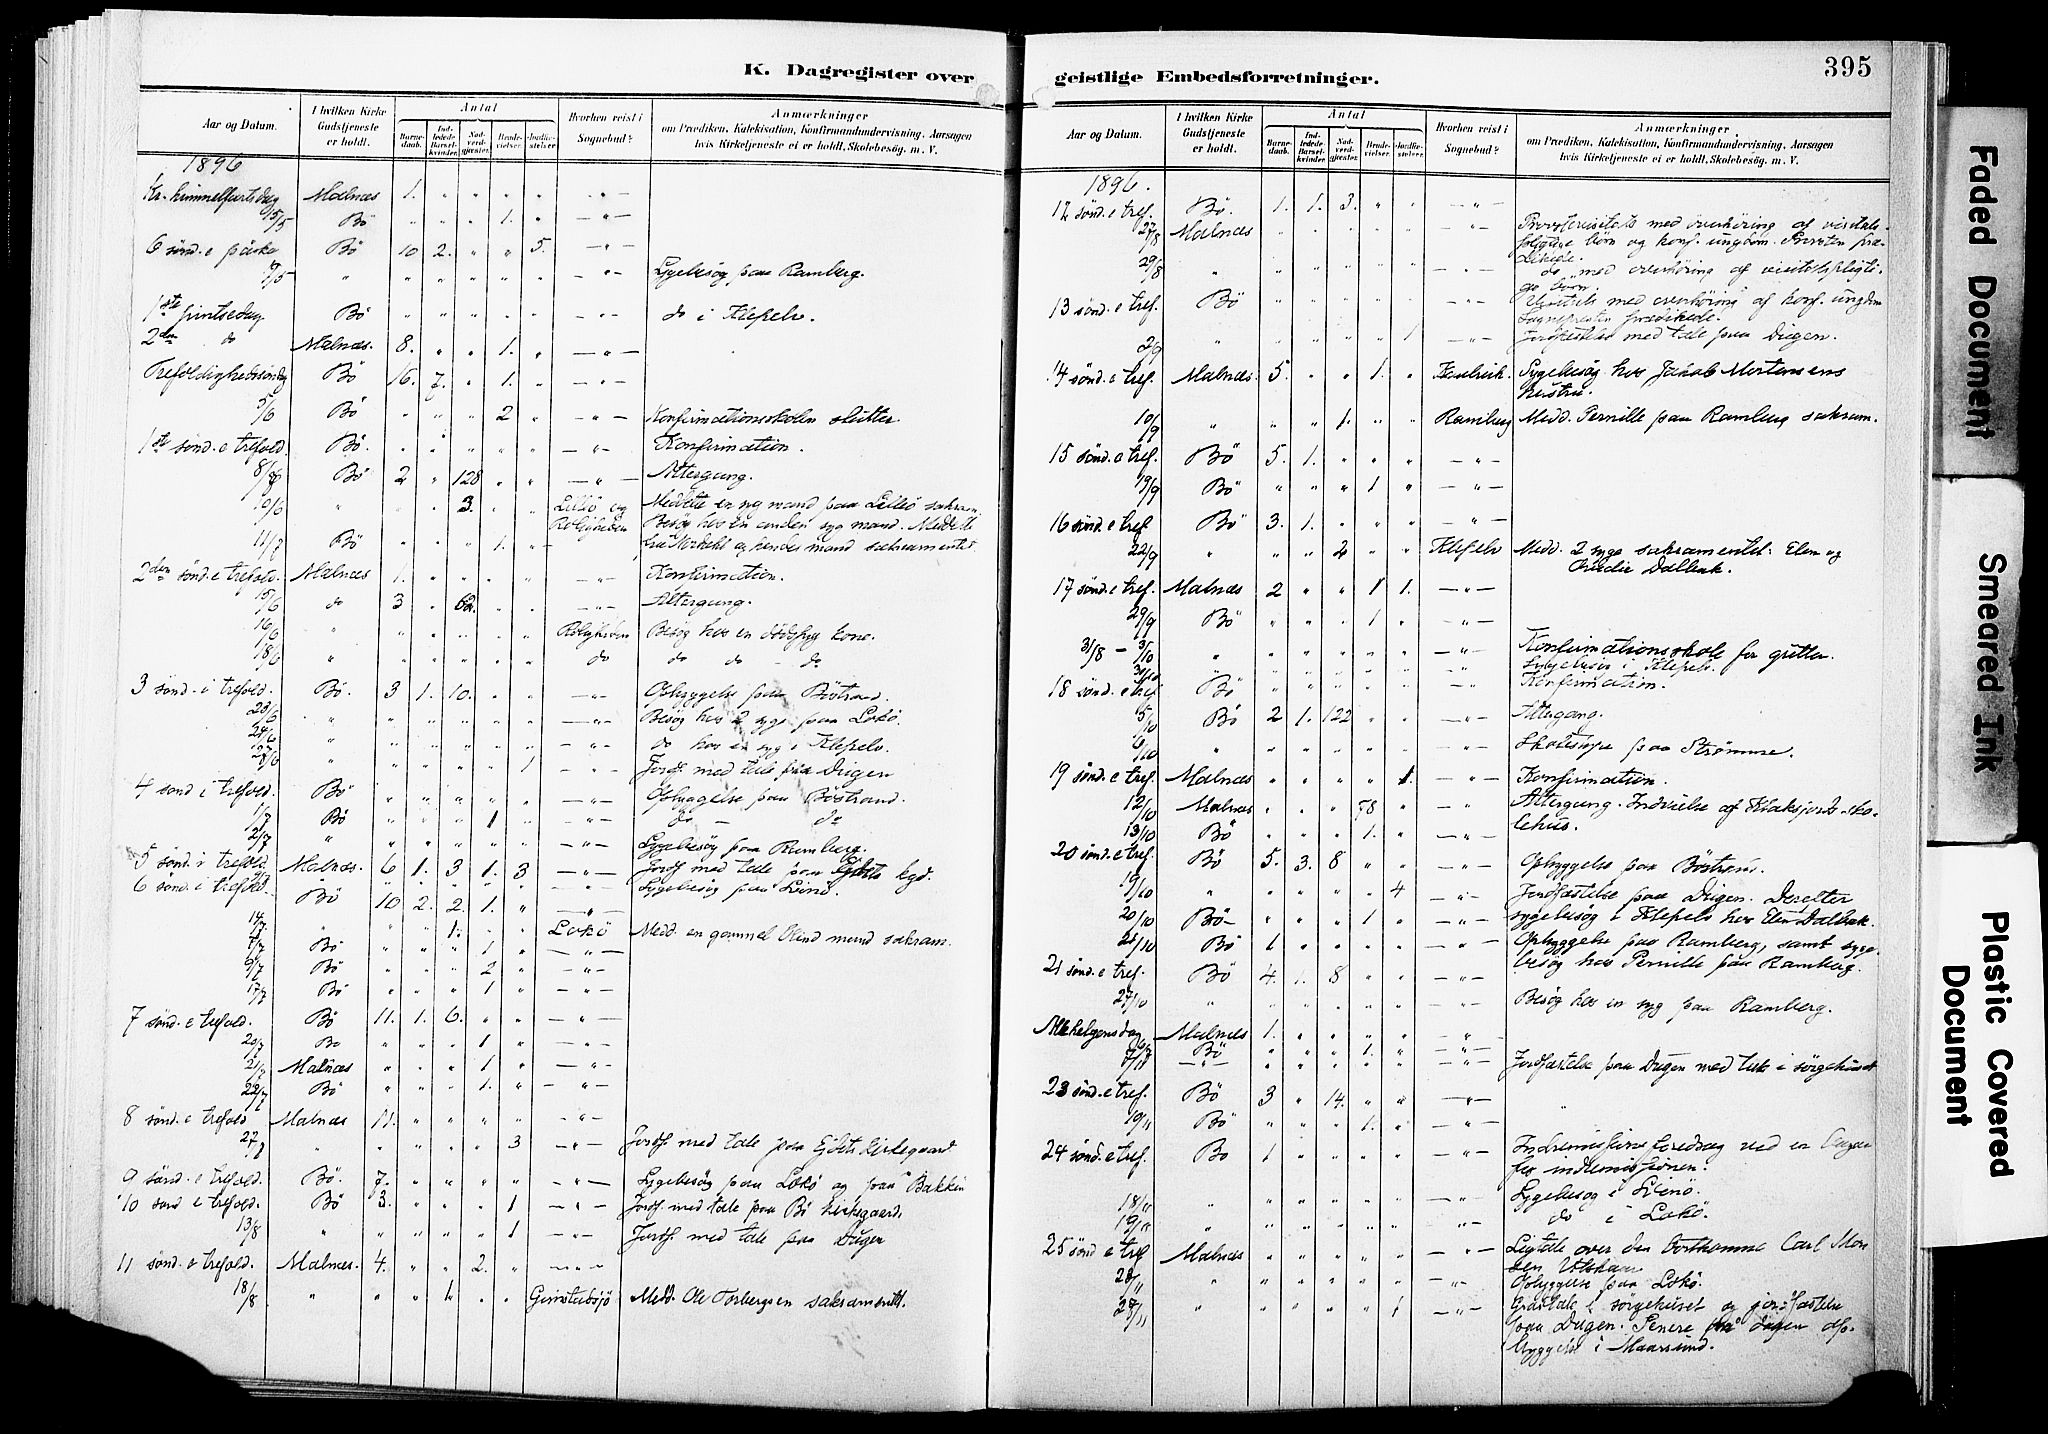 K. Dagregister over
Aar og Datum.
I hvilken Kirke Gudstjeneste er holdt.
Antal
Barnedaab.
Indledede Barselkvinder.
Nadverdgjæster.
Brudevielser.
Jordfæstelser.
Hvorhen reist i Sognebud?
Anmærkninger
om Prædiken, Katekisation, Konfirmandundervisning, Aarsagen
hvis Kirketjeneste ei er holdt, Skolebesøg. m. V.
1896
Kr. himmelfartsdag Malnæs 1. " " " " — " —
15/5 Bö " " " 1. " — " —
6 sönd. e påske Bö 10 2. " " 5. — " —
" " " " " " — " — Sygebesög paa Ramberg.
1ste pintsedag Bö " " " " " — " — do i Klepelv.
2den do Malnæs. 8. " " 1. " — " —
Trefoldighedssöndag Bö 16. 7. " 1. " — " —
5/6 Bö " " " 2 " — " — Konfirmationsskolen slutter.
1ste sönd. e trefold. Bö. " " " " " — " — Konfirmation.
Bö 2 " 128 " " — " — Altergang.
10/6 " " " 3. " " Lillö og Roligheden Meddelte en syg mand paa Lillö sakram.
Besög hos en anden syg mand. Meddelte
Bö " " " 1. " — " — og hendes mand sakramentet.
2den sönd. e trefold. Malnæs 1. " " " " — " — Konfirmation.
15/6 do 3 " 62. " " — " — Altergang.
16/6 " " " " " " Roligheden Besög hos en dödssyg kone.
18/6 " " " " " " do do do - do
3 sönd. i trefold. Bö. 3 1. 10. " " — " — Opbyggelse paa Böstrand.
23/6 " " " " " " — " — Besög hos 2 syge paa Lokö.
24/6 " " " " " " — " — do hos en syg i Klepelv.
" " " " " 1 — " — Jordf. med tale paa Dugen
4 sönd i trefold. Bö " " " " " — " — Opbyggelse paa Böstrand.
1/7 Bö " " " 1 " — " — do — do
2/7 " " " " " " — " — Sygebesög paa Ramberg.
5 sönd. i trefold. Malnæs. 6 1. 3 1. 3 — " — Jordf. med tale paa kgd.
6 sönd. i trefold. Sygebesög paa
Bö 10 2. 2. 1. " — " —
" " " 1. " " Lokö Medd. en gammel blind mand sakram.
7/7 Bö " " " 1 " — " —
9/7 Bö " " " 2 " — " —
17/7 Bö " " " 1 " — " —
7 sönd. e trefold. Bö 11. 1. 6. " " — " —
20/7 Bö " " " 1 " — " —
21/7 Malnæs " " " 1 " — " —
22/7 Bö " " " 1. " — " —
8 sönd. e trefold Malnæs 11. " " " " — " —
27/7 " " " " " 3 — " — Jordf. med tale paa kirkegaard.
9 sönd. e trefold. Bö. 7. " " " " — " — Sygebesög paa Lokö og paa Bakken
10 sönd e trefold. Bö 3. " " " 1 — " — Jordf. med tale paa Bö kirkegaard.
13/8 " " " " " 1 — " — Jordf. med tale paa Dugen
11 sönd. e trefold. Malnæs. 4. " " 2. " — " —
18/8 " " " 1. " " Grimstadsjö Medd. Ole Torbergsen sakramentet.
geistlige Embedsforretninger.
395
Aar og Datum.
I hvilken Kirke Gudstjeneste er holdt.
Antal
Barnedaab.
Indledede Barselkvinder.
Nadverdgjæster.
Brudevielser.
Jordfæstelser.
Hvorhen reist i Sognebud?
Anmærkninger
om Prædiken, Katekisation, Konfirmandundervisning, Aarsagen
hvis Kirketjeneste ei er holdt, Skolebesøg. m. V.
1896.
12 sönd. e tref. Bö. 1. 1. 3. " " — " —
27/8 Malnæs " " " " " — " — Provstevisitats med overhöring af visitats-
pligtige börn og konf. ungdom. Provsten præ-
dikede.
29/8 " " " " " " — " — do " med overhöring af visitatspligti-
ge börn.
13 sönd. e tref. Bö " " " " " — " — Visitats med overhöring af konf. ungdom
Sognepresten prædikede.
2/9 " " " " " 1 — " — Jordfæstelse med tale paa Dugen.
14 sönd. e tref. Malnæs. 5. " " 1. " Sygebesög hos Jakob Mortensens
hustru.
10/9 " " " 1. " " Ramberg Medd. Pernille paa Ramberg sakram.
15 sönd. e tref. Bö 5. 1. " " " — " —
Bö " " " 1 " — " —
16 sönd. e tref. Bö 3. 1. " " " — " —
22/9 " " " 2 " " Klepelv Medd. 2 syge sakramentet: Elen og
Dalbak.
17 sönd. e tref. Malnæs 2 " " 1 1. — " —
29/9 Bö " " " 1 " — " —
31/8 — 3/10 " " " " " " — " — Konfirmationsskole for gutter.
3/10 Sygebesög i Klepelv.
18 sönd. e tref. Bö " " " " " — " — Konfirmation.
5/10 Bö 2 1. 122 " " — " — Altergang.
6/10 " " " " " " — " — Skolestyre paa Strömme.
19 sönd. e tref. Malnæs " " " " 1. — " — Konfirmation.
12/10 Malnæs " " " 78 " — " — Altergang. Indvielse af sko-
lehus.
13/10 Bö " " " 1. " — " —
20 sönd. e tref. Bö 5. 3. 8 " " — " — Opbyggelse paa Böstrand.
19/10 " " " " " 4 — " — Jordfæstelse paa Dugen. Derefter
20/10 Bö " " " 1 " — " — sygebesög i Klepelv hos Elen Dalbak.
21/10 Bö 1 " " " " — " — Opbyggelse paa Ramberg, samt syge-
besög hos Pernille paa Ramberg.
21 sönd. e tref. Bö 4. 1. 8 " " — " —
27/10 " " " " " " — " — Besög hos en syg paa Ramberg.
Allehelgensdag Malnæs 1. " " " " — " —
Bö " " " 1. " — " —
— " — " " " " " — " — Jordfæstelse paa Dugen med tale i sörgehuset
23 sönd. e tref. Bö 3 " 14. " " — " —
Bö " " " 1. " — " —
24 sönd. e tref. Bö 1 " " " " — " — Indremissionsforedrag ved en
for indremissionen.
18/11 " " " " " " — " — Sygebesög i
19/11 " " " " " " — " — do i Lokö.
25 sönd e tref. Malnæs " " " " " — " — Ligtale over den bortkomne Carl
" " " " " " — " — Opbyggelse paa Lokö.
" " " " " 1 — " — Gravtale i sörgehuset og jordfæstelse
paa Dugen. Senere paa dagen op-
byggelse i Maarsund.
Faded Document
Smeared Ink
Plastic Covered Document